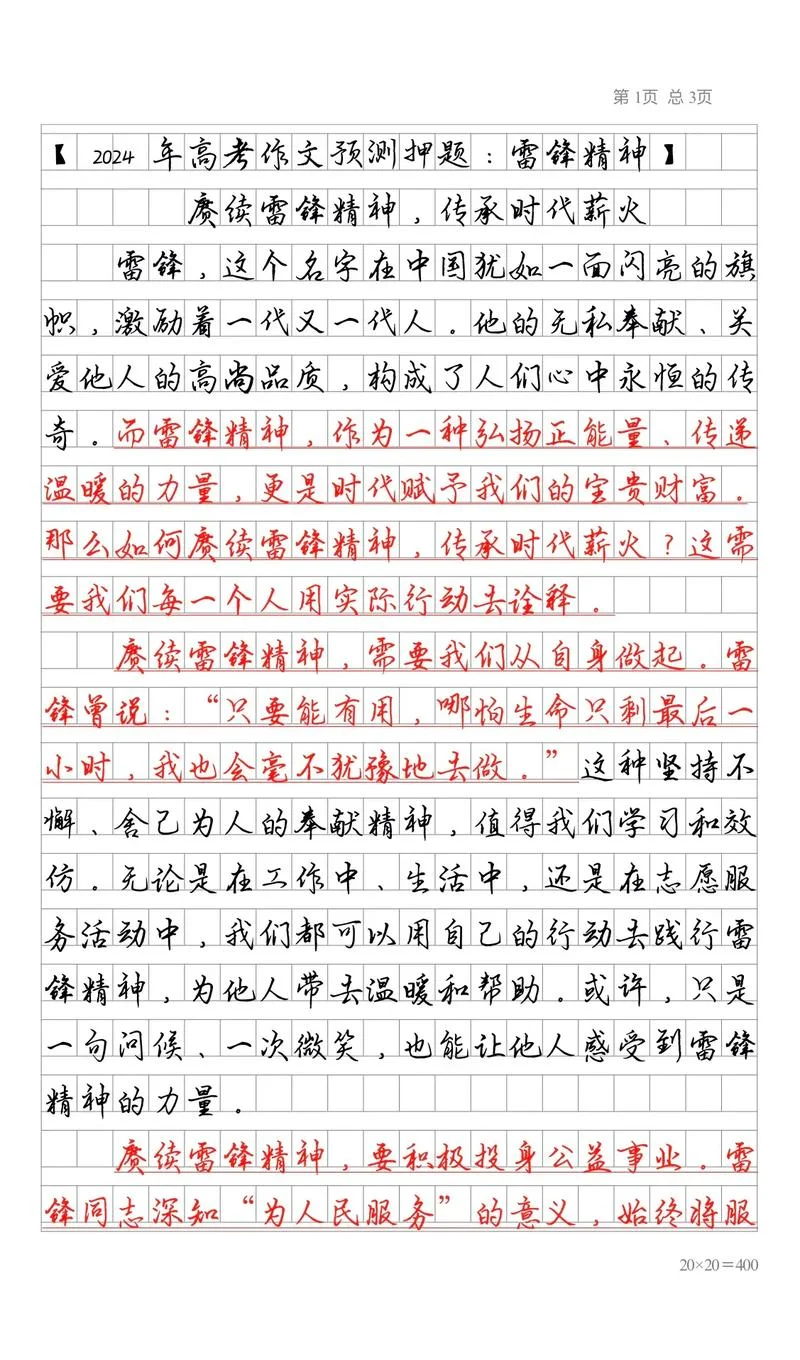 第1页 总3页
【 2024 年高考作文预测押题：雷锋精神】
赓续雷锋精神，传承时代薪火
雷锋，这个名字在中国犹如一面闪亮的旗
帜，激励着一代又一代人。他的无私奉献、关
爱他人的高尚品质，构成了人们心中永恒的传
奇。而雷锋精神，作为一种弘扬正能量、传递
温暖的力量，更是时代赋予我们的宝贵财富。
那么如何赓续雷锋精神，传承时代薪火？这需
要我们每一个人用实际行动去诠释。
赓续雷锋精神，需要我们从自身做起。雷
锋曾说：“只要能有用，哪怕生命只剩最后一
小时，我也会毫不犹豫地去做。”这种坚持不
懈、舍己为人的奉献精神，值得我们学习和效
仿。无论是在工作中、生活中，还是在志愿服
务活动中，我们都可以用自己的行动去践行雷
锋精神，为他人带去温暖和帮助。或许，只是
一句问候、一次微笑，也能让他人感受到雷锋
精神的力量。
赓续雷锋精神，要积极投身公益事业。雷
锋同志深知“为人民服务”的意义，始终将服
20×20＝400